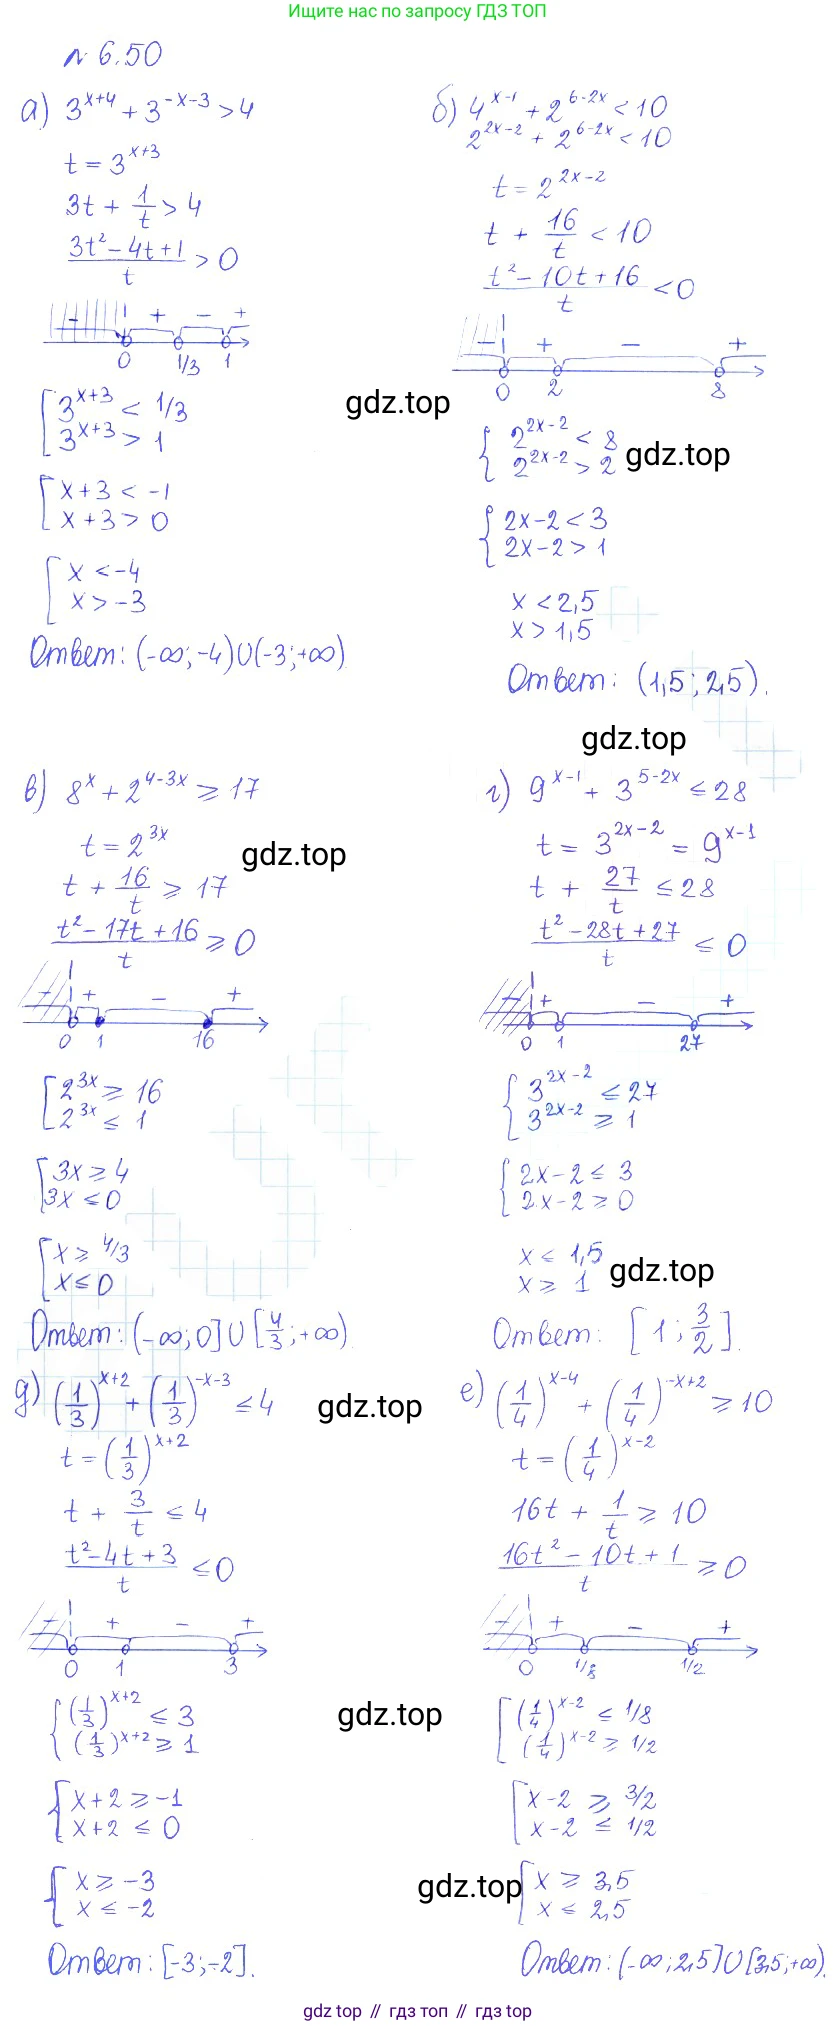 Ищите нас по запросу ГДЗ ТОП
№ 6.50
а) 3^{x+4} + 3^{-x-3} > 4
t = 3^{x+3}
3t + 1/t > 4
(3t² - 4t + 1)/t > 0
- + - +
0 1/3 1
[ 3^{x+3} < 1/3
3^{x+3} > 1
[ x+3 < -1
x+3 > 0
[ x < -4
x > -3
Ответ: (-∞; -4)∪(-3; +∞).
б) 4^{x-1} + 2^{6-2x} < 10
2^{2x-2} + 2^{6-2x} < 10
t = 2^{2x-2}
t + 16/t < 10
(t² - 10t + 16)/t < 0
- + - +
0 2 8
gdz.top
{ 2^{2x-2} < 8
2^{2x-2} > 2
gdz.top
{ 2x-2 < 3
2x-2 > 1
x < 2,5
x > 1,5
Ответ: (1,5; 2,5).
gdz.top
в) 8^x + 2^{4-3x} ≥ 17
t = 2^{3x}
gdz.top
t + 16/t ≥ 17
(t² - 17t + 16)/t ≥ 0
- + - +
0 1 16
[ 2^{3x} ≥ 16
2^{3x} ≤ 1
[ 3x ≥ 4
3x ≤ 0
[ x ≥ 4/3
x ≤ 0
Ответ: (-∞; 0]∪[4/3; +∞).
г) 9^{x-1} + 3^{5-2x} ≤ 28
t = 3^{2x-2} = 9^{x-1}
t + 27/t ≤ 28
(t² - 28t + 27)/t ≤ 0
- + - +
0 1 27
{ 3^{2x-2} ≤ 27
3^{2x-2} ≥ 1
{ 2x-2 ≤ 3
2x-2 ≥ 0
x ≤ 1,5
x ≥ 1
gdz.top
Ответ: [1; 3/2].
д) (1/3)^{x+2} + (1/3)^{-x-3} ≤ 4
gdz.top
t = (1/3)^{x+2}
t + 3/t ≤ 4
(t² - 4t + 3)/t ≤ 0
- + - +
0 1 3
{ (1/3)^{x+2} ≤ 3
(1/3)^{x+2} ≥ 1
gdz.top
{ x+2 ≥ -1
x+2 ≤ 0
{ x ≥ -3
x ≤ -2
Ответ: [-3; -2].
е) (1/4)^{x-4} + (1/4)^{-x+2} ≥ 10
t = (1/4)^{x-2}
16t + 1/t ≥ 10
(16t² - 10t + 1)/t ≥ 0
- + - +
0 1/8 1/2
[ (1/4)^{x-2} ≤ 1/8
(1/4)^{x-2} ≥ 1/2
[ x-2 ≥ 3/2
x-2 ≤ 1/2
gdz.top
[ x ≥ 3,5
x ≤ 2,5
Ответ: (-∞; 2,5]∪[3,5; +∞).
gdz top // гдз топ // gdz top